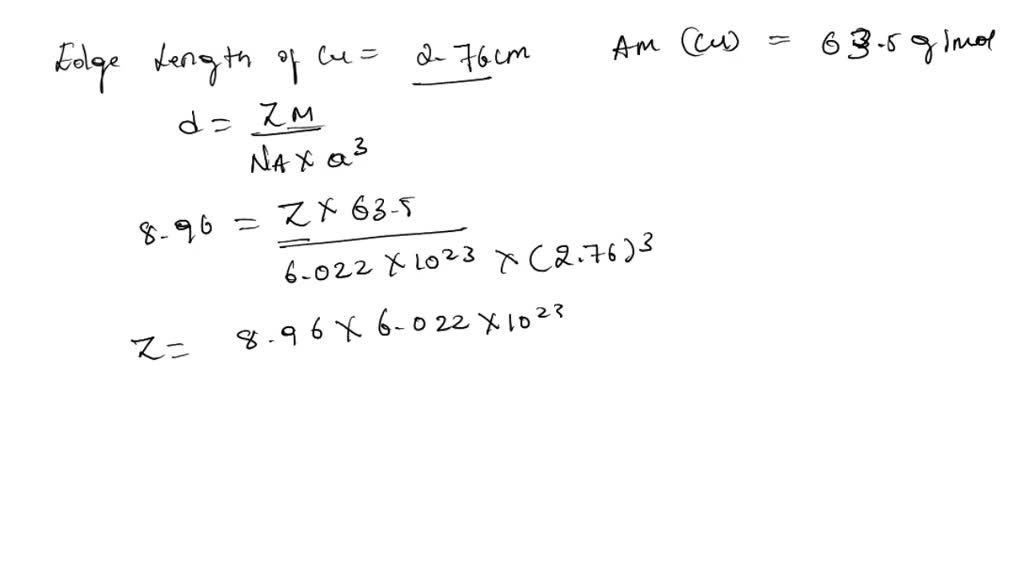 Edge Length of Cu = 2.76cm Am (Cu) = 63.5 g/mol
d = ZM / NA × a³
8.96 = Z × 63.5 / 6.022 × 10²³ × (2.76)³
Z = 8.96 × 6.022 × 10²³